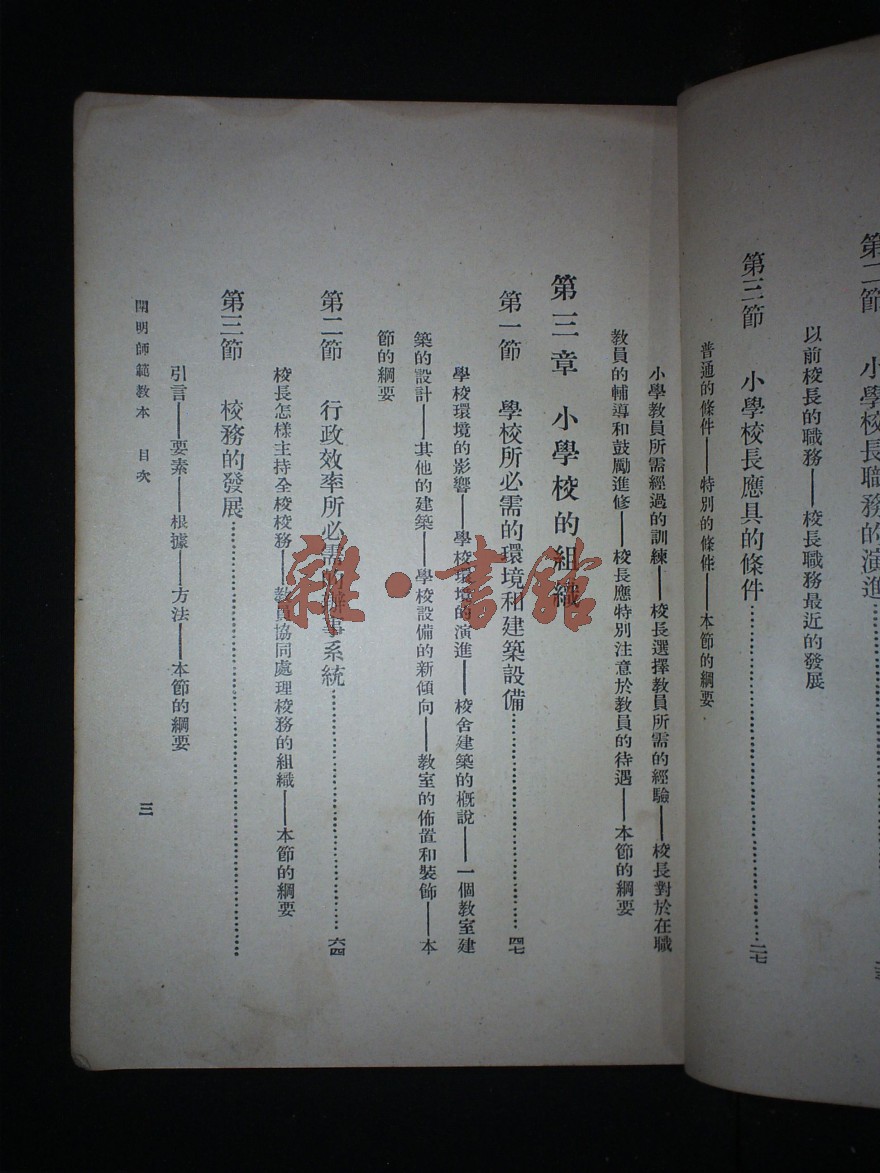 第二節　小學校長職務的演進……
以前校長的職務——校長職務最近的發展
第三節　小學校長應具的條件……二七
普通的條件——特別的條件——本節的綱要
小學教員所需經過的訓練——校長選擇教員所需的經驗——校長對於在職
教員的輔導和鼓勵進修——校長應特別注意於教員的待遇——本節的綱要
第三章　小學校的組織
第一節　學校所必需的環境和建築設備……四七
學校環境的影響——學校環境的演進——校舍建築的概說——一個教室建
築的設計——其他的建築——學校設備的新傾向——教室的佈置和裝飾——本
節的綱要
第二節　行政效率所必需的辦事系統……六四
校長怎樣主持全校校務——教員協同處理校務的組織——本節的綱要
第三節　校務的發展……
引言——要素——根據——方法——本節的綱要
開明師範教本　目次
三
雜·書館